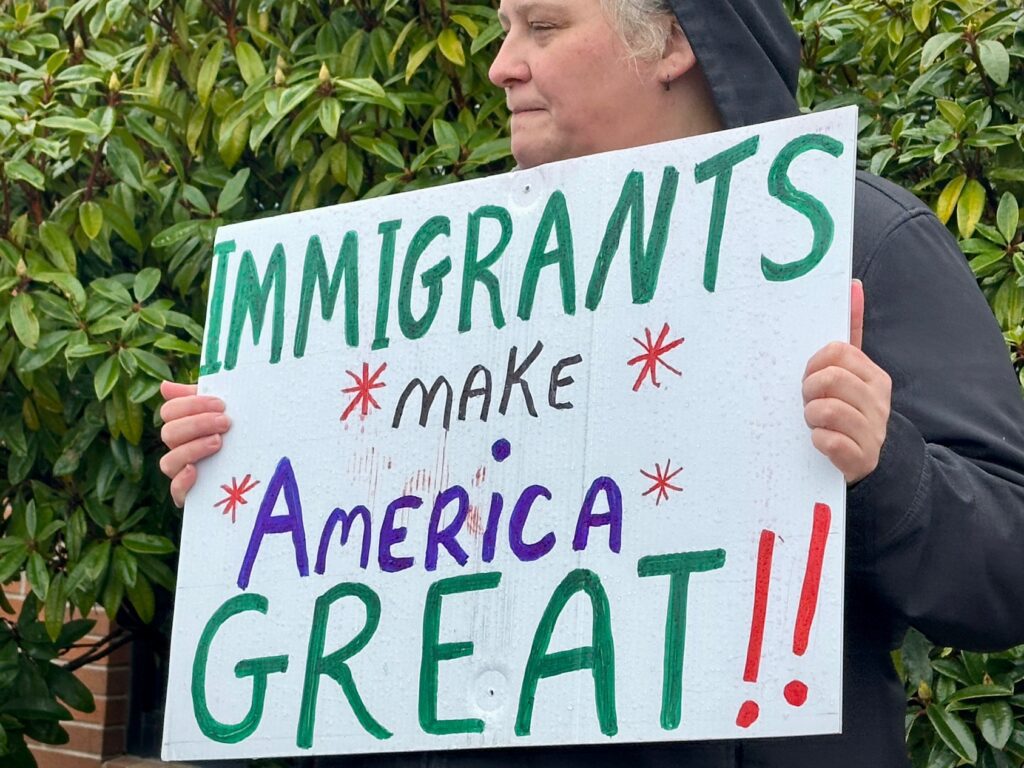 IMMIGRANTS
MAKE
AMERiCA
GREAT!!